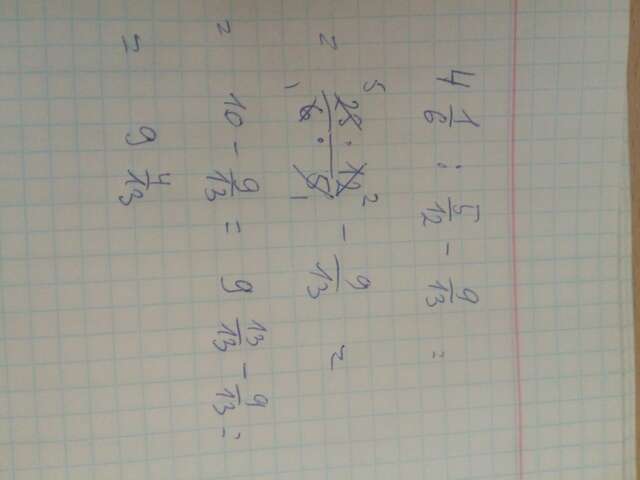 4 1/6 : 5/12 - 9/13 =
= 25 · 12 / 6 · 5 - 9/13 =
= 10 - 9/13 = 9 13/13 - 9/13 =
= 9 4/13